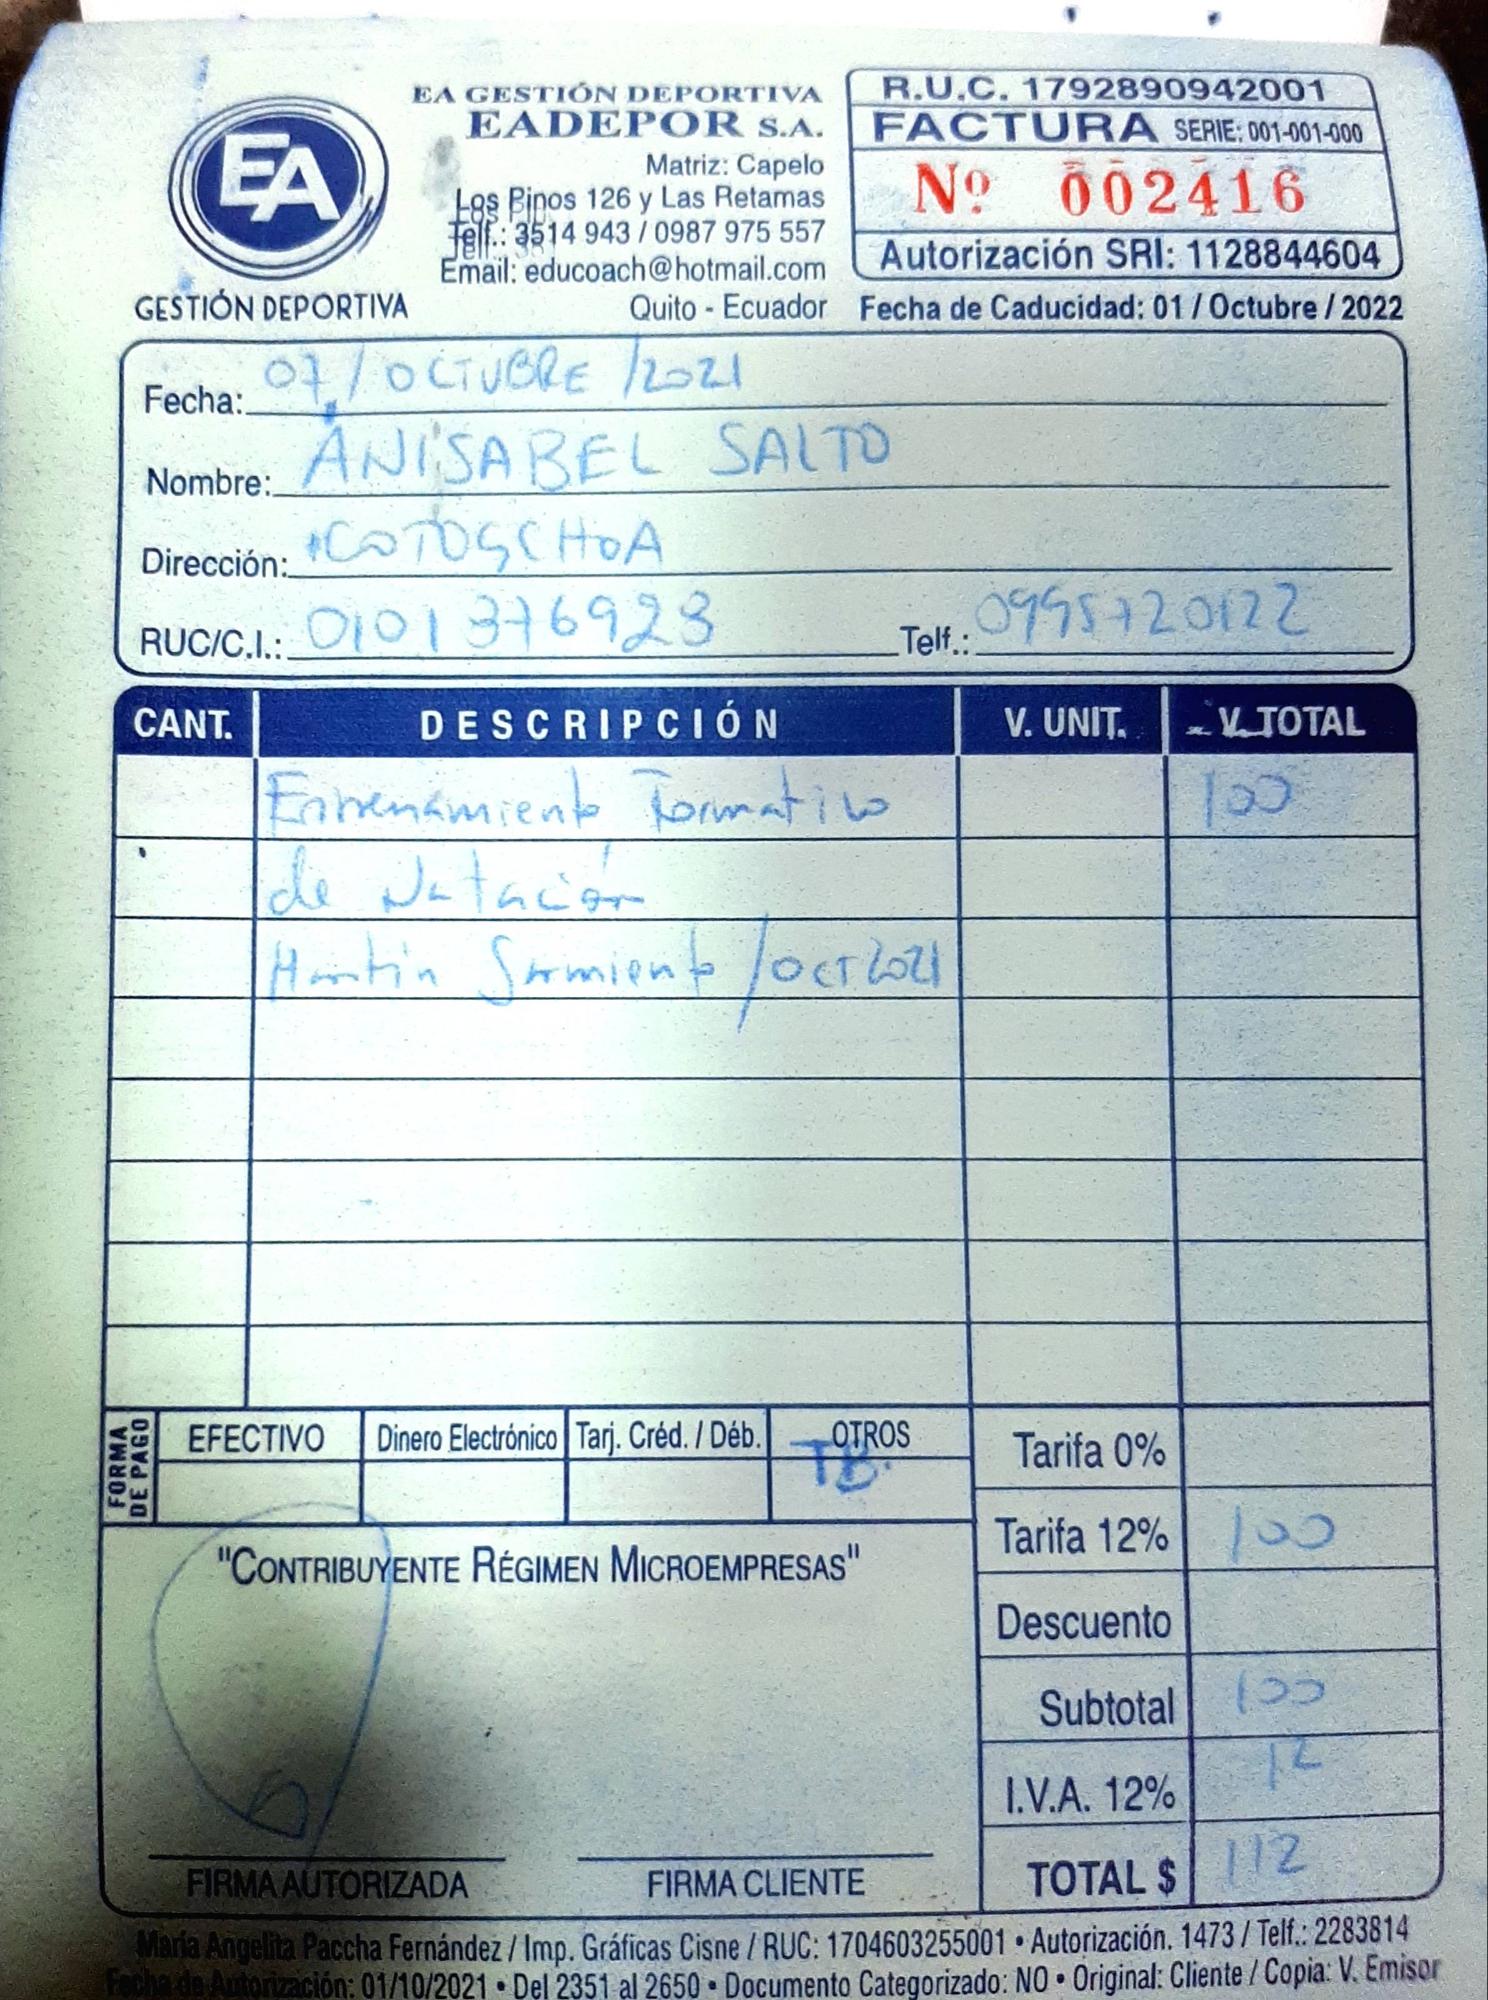 EA
GESTIÓN DEPORTIVA
EA GESTIÓN DEPORTIVA
EADEPOR S.A.
Matriz: Capelo
Los Pinos 126 y Las Retamas
Telf.: 3514 943 / 0987 975 557
Email: educoach@hotmail.com
Quito - Ecuador
R.U.C. 1792890942001
FACTURA SERIE: 001-001-000
Nº 002416
Autorización SRI: 1128844604
Fecha de Caducidad: 01 / Octubre / 2022
Fecha: 07 / OCTUBRE / 2021
Nombre: ANISABEL SALTO
Dirección: COTOGCHOA
RUC/C.I.: 0101376923 Telf.: 0995720122
CANT. DESCRIPCIÓN V. UNIT. V. TOTAL
Entrenamiento Formativo 100
de Natación
Martín Sarmiento / OCT 2021
FORMA DE PAGO EFECTIVO Dinero Electrónico Tarj. Créd. / Déb. OTROS
TB.
Tarifa 0%
Tarifa 12% 100
"CONTRIBUYENTE RÉGIMEN MICROEMPRESAS"
Descuento
Subtotal 100
I.V.A. 12% 12
TOTAL $ 112
FIRMA AUTORIZADA FIRMA CLIENTE
María Angelita Paccha Fernández / Imp. Gráficas Cisne / RUC: 1704603255001 • Autorización. 1473 / Telf.: 2283814
Fecha de Autorización: 01/10/2021 • Del 2351 al 2650 • Documento Categorizado: NO • Original: Cliente / Copia: V. Emisor